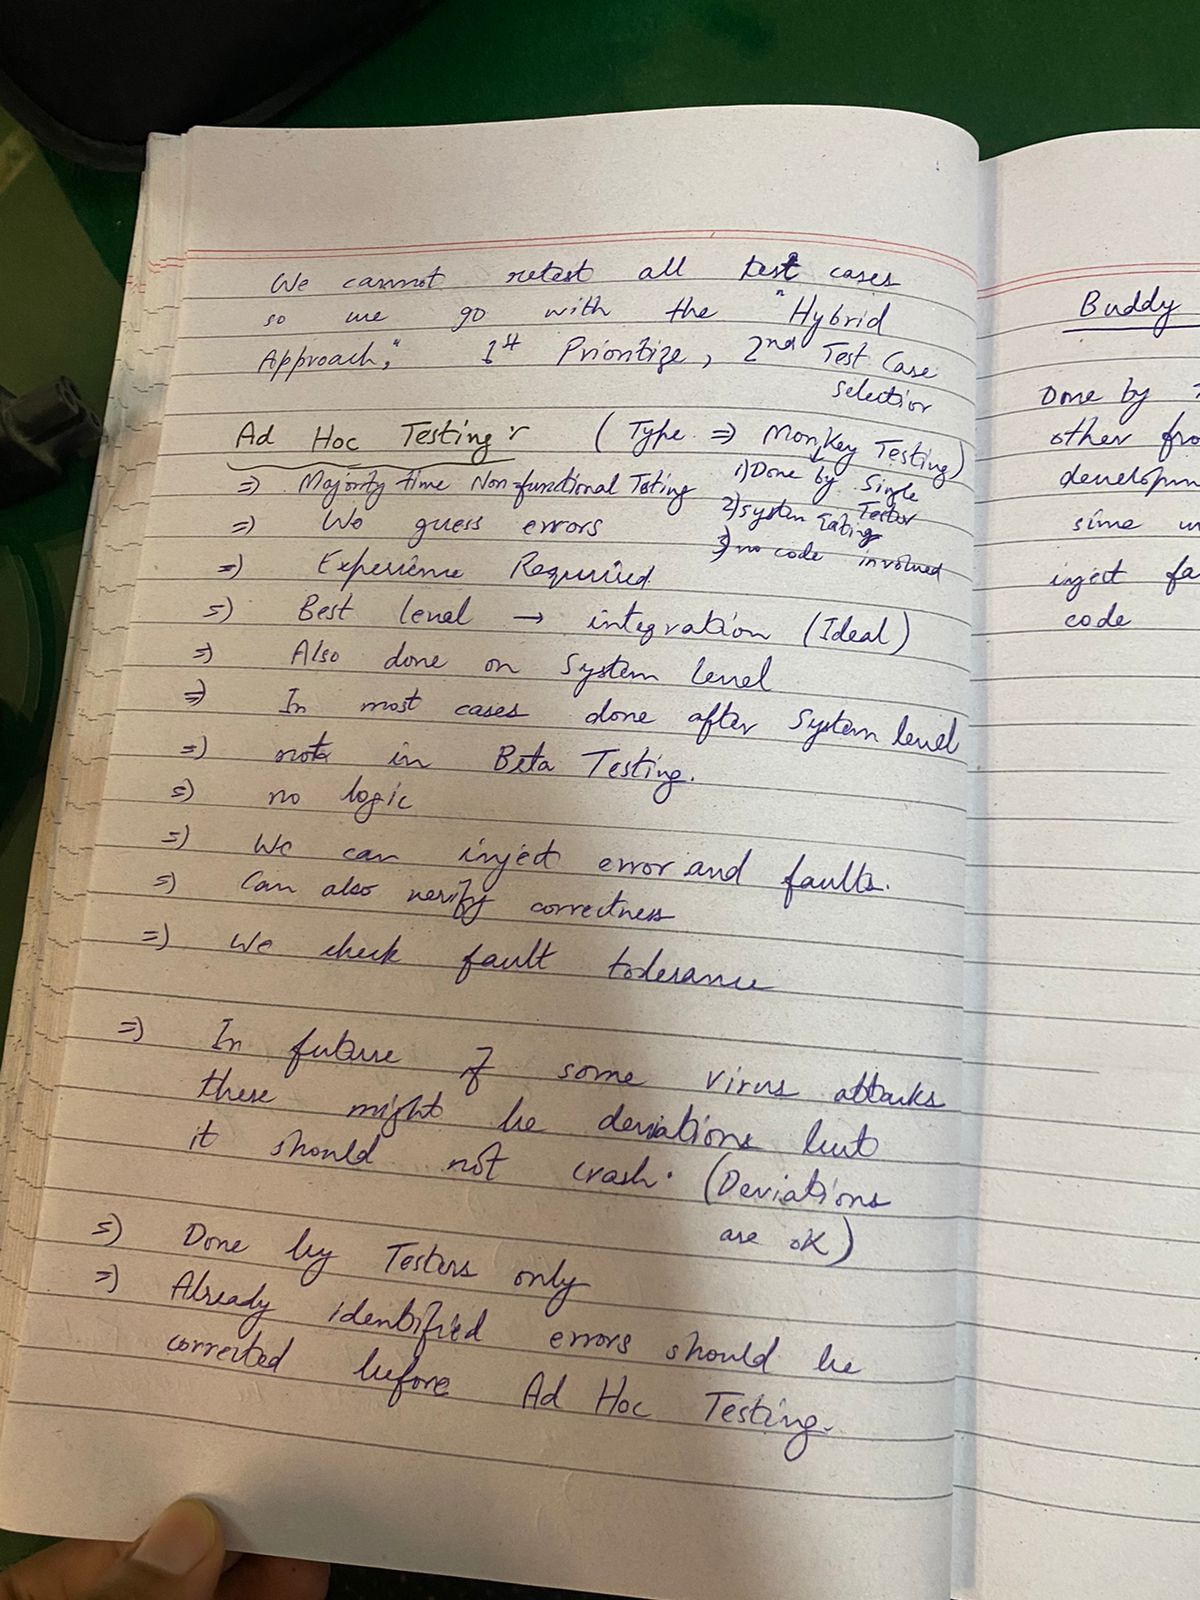 We cannot retest all test cases
so we go with the "Hybrid
Approach," 1st Prioritize, 2nd Test Case
selection
Ad Hoc Testing (Type => Monkey Testing)
=> Majority time Non-functional Testing
1) Done by Single
Tester
=> We guess errors
2) System Testing
3) no code involved
=> Experience Required
=> Best level → integration (Ideal)
=> Also done on System level
=> In most cases done after System level
=> not in Beta Testing.
=> no logic
=> We can inject error and faults.
=> Can also verify correctness
=> We check fault tolerance
=> In future if some virus attacks
there might be deviations but
it should not crash. (Deviations
are OK)
=> Done by Testers only
=> Already identified errors should be
corrected before Ad Hoc Testing.
Buddy
Done by
other
developm
inject fa
code